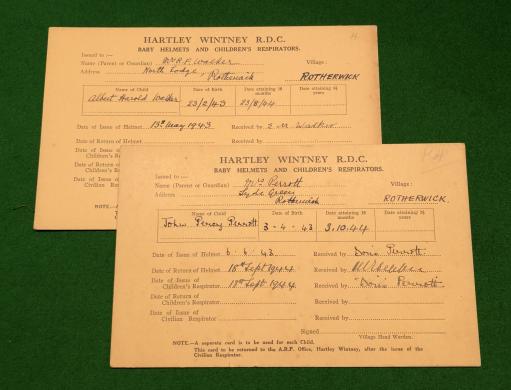 HARTLEY WINTNEY R.D.C.
BABY HELMETS AND CHILDREN'S RESPIRATORS.
Issued to :—
Name (Parent or Guardian) Walker Village :
Address North Lodge, Rotherwick ROTHERWICK
Name of Child Date of Birth Date attaining 18 months Date attaining 4½ years
Albert Harold Walker 23/2/43 23/8/44
Date of Issue of Helmet 13th May 1943 Received by
Date of Return of Helmet
Date of Issue of
Children's
Date of Return
Children's
Date of Issue
Civilian
NOTE.—A
HARTLEY WINTNEY R.D.C.
BABY HELMETS AND CHILDREN'S RESPIRATORS.
Issued to :—
Name (Parent or Guardian) Mrs Perrott Village :
Address Green Rotherwick ROTHERWICK.
Name of Child Date of Birth Date attaining 18 months Date attaining 4½ years
John Percy Perrott 3-4-43 3.10.44
Date of Issue of Helmet 6.6.43. Received by Doris Perrott
Date of Return of Helmet 18th Sept 1944 Received by
Date of Issue of Children's Respirator 18th Sept 1944 Received by Doris Perrott
Date of Return of Children's Respirator Received by
Date of Issue of Civilian Respirator Received by
Signed
Village Head Warden.
NOTE.—A separate card is to be used for each Child.
This card to be returned to the A.R.P. Office, Hartley Wintney, after the issue of the
Civilian Respirator.